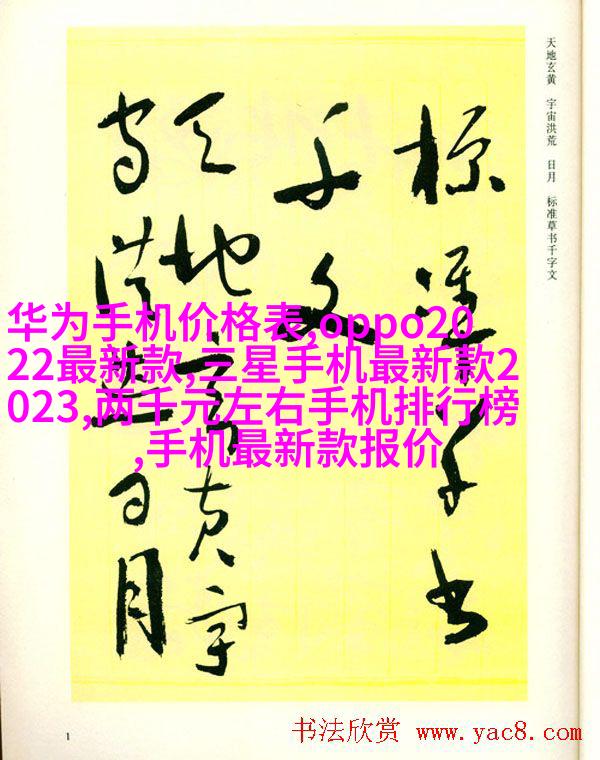 天地玄黄 宇宙洪荒 日月 标准草书千字文
標準草书
千文
天地玄黄宇
宙洪荒日月
华为手机价格表,oppo20
22最新款,三星手机最新款2
023,两千元左右手机排行榜
,手机最新款报价
1
书法欣赏 www.yac8.com